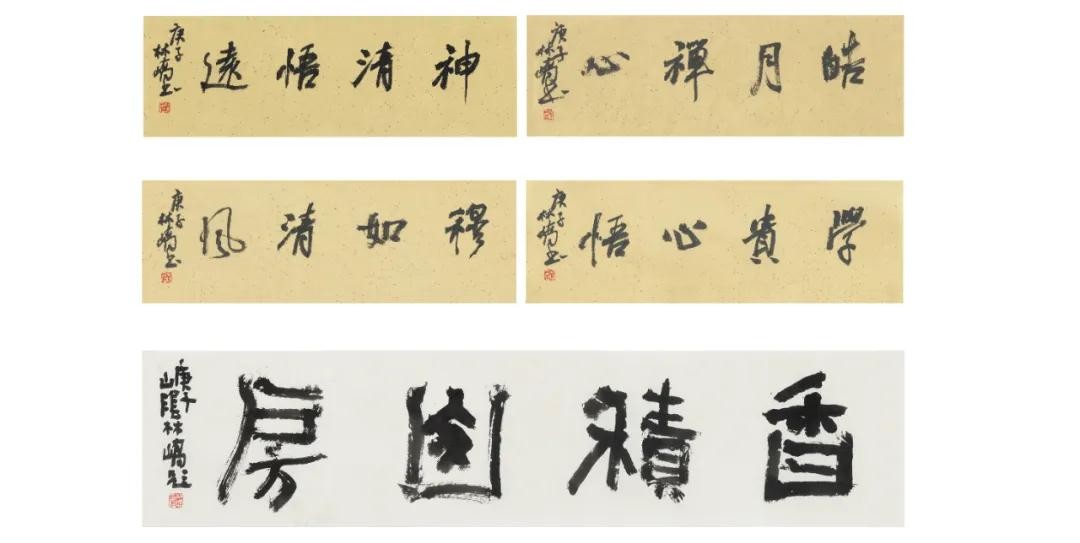 神清悟遠
庚子
林嶠書
皓月禪心
庚子
林嶠書
穆如清風
庚子
林嶠書
學貴心悟
庚子
林嶠書
香積房
庚子
山陰林嶠題